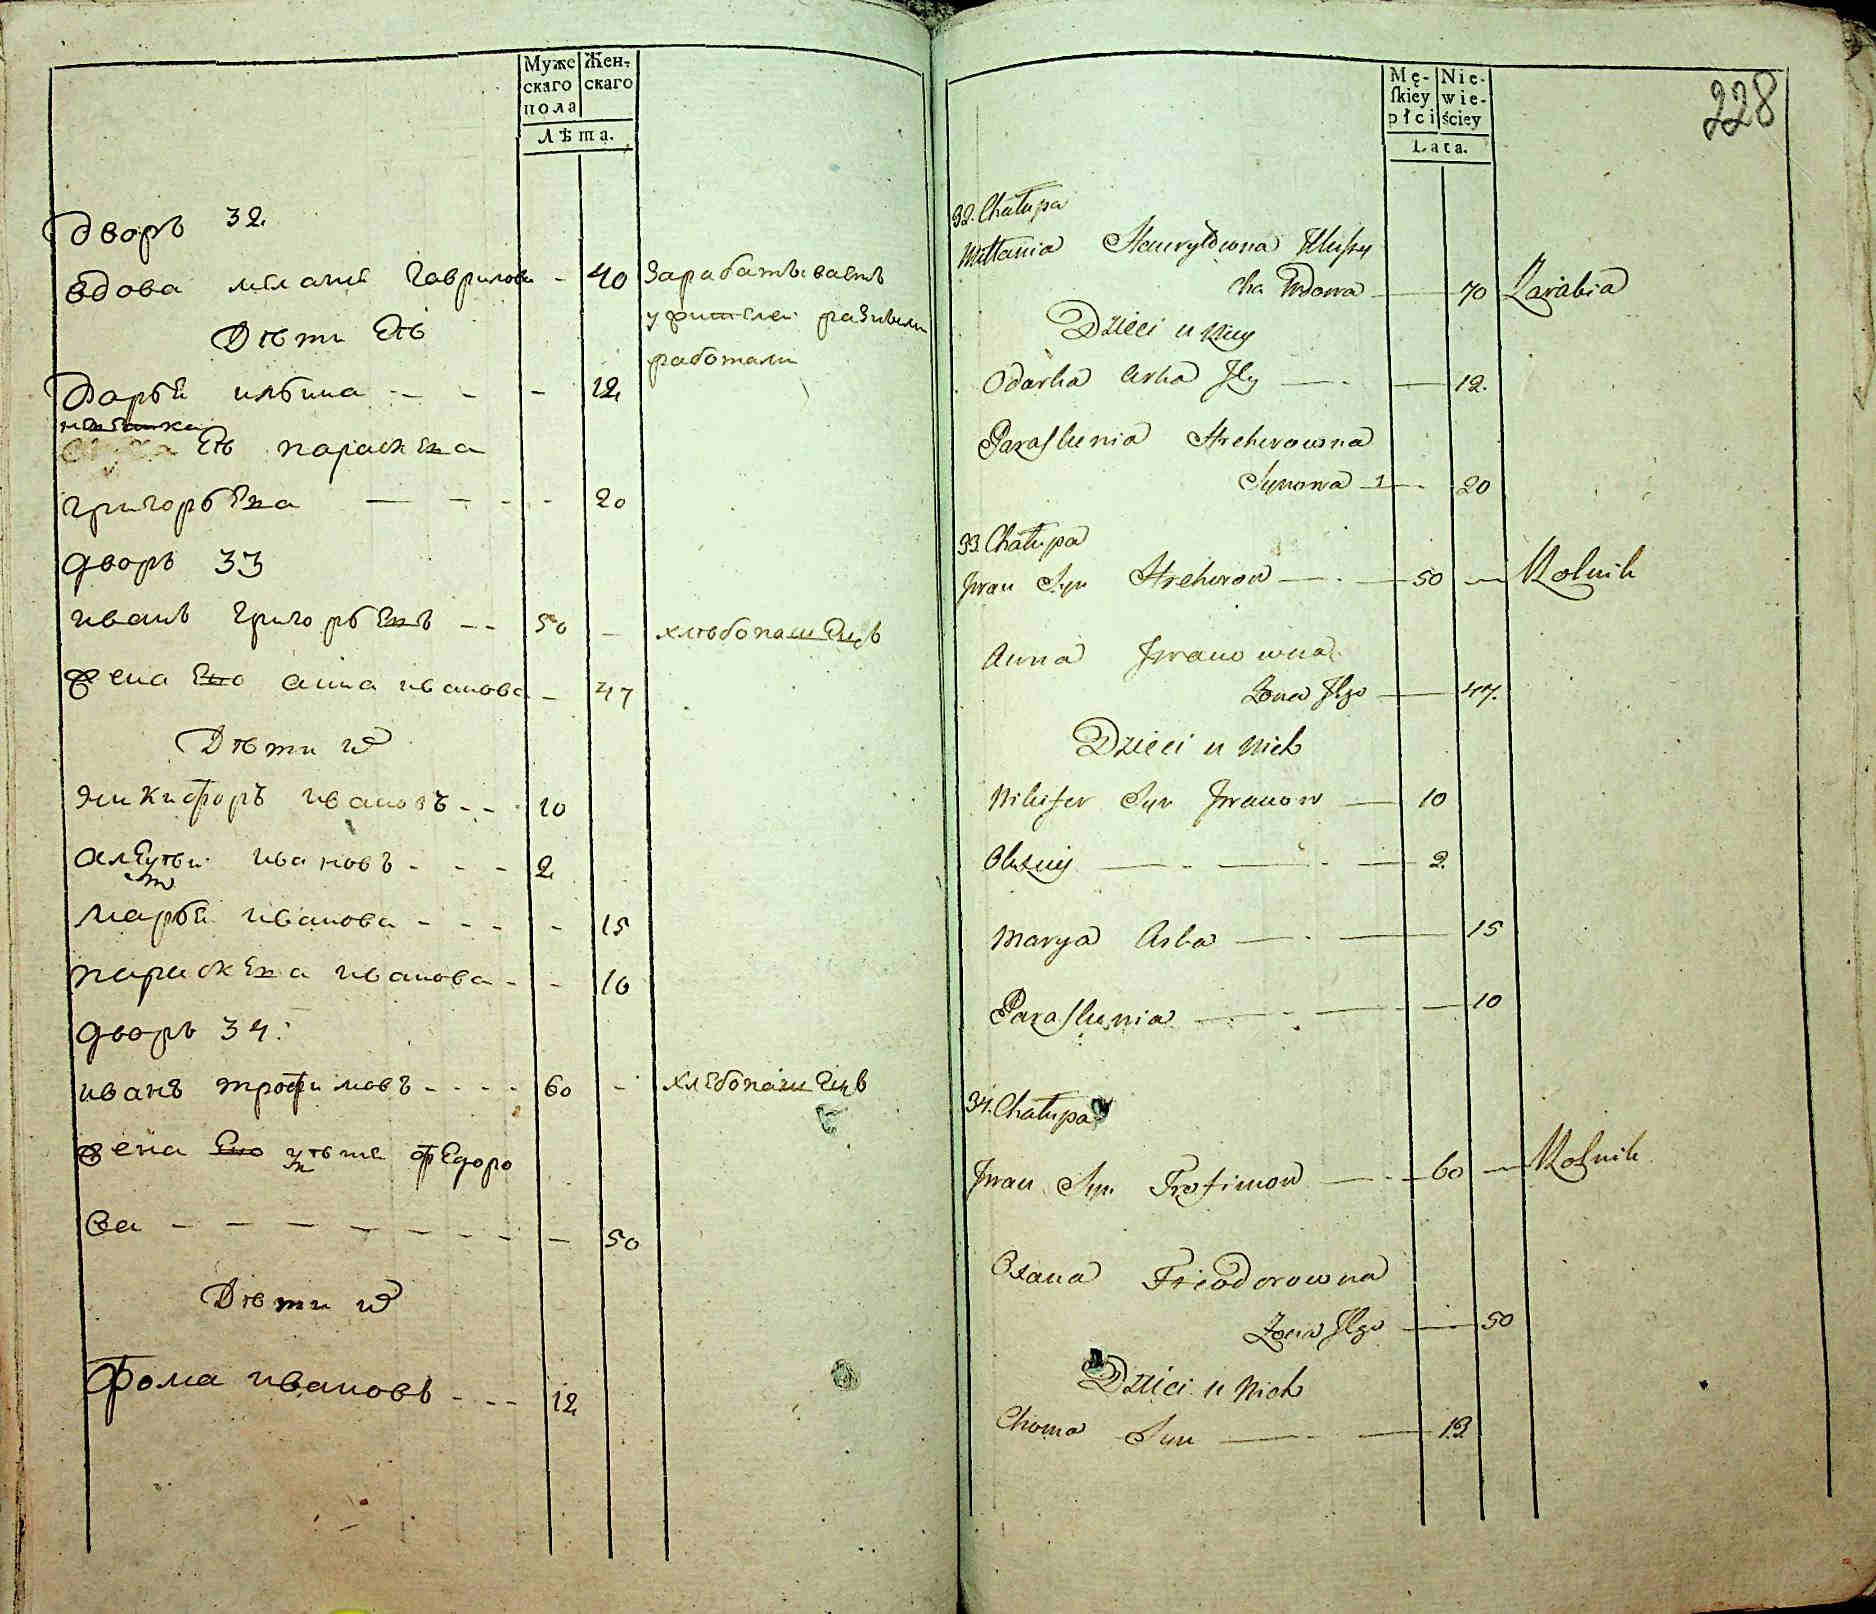 Муже
скаго
пола
Жен-
скаго
Лѣта.
Дворъ 32.
вдова мелание Гаврилова - 40 Зарабатываетъ
уразными
работами
Дѣти Еѣ
Дарья ильина - - - 12
Еѣ параскева
григорьева - - - - 20
дворъ 33
иванъ григорьевъ - - 50 - хлѣбопашецъ
жена Его анна иванова - 47
Дѣти их
никифоръ ивановъ - - 10
алексѣи ивановъ - - - 2
марья иванова - - - - 15
параскева иванова - - 10
дворъ 34.
иванъ трофимовъ - - - - 60 - хлебопашецъ
жена Его федоро
ва - - - - - - - - - 50
Дѣти их
Фома ивановъ - - - 12
Mę-
skiey
płci
Nie-
wie-
ściey
Lata.
228
32. Chałupa
Mełania Hawryłowna
cha Wdowa - 70 Zarabia
Dzieci u Niey
Odarka Cirka Jey - - - 12.
Paraskiewia Hrehorowna
Synowa 1 - 20
33. Chałupa
Jwan Syn Hrehorow - - - 50 - Rolnik
Anna Jwanowna
Żona Jego - 47.
Dzieci u Nich
Nikifer Syn Jwanow - 10
Olexiey - - - - - 2.
Marya Corka - - - 15
Paraskiewia - - - - 10
34. Chałupa
Jwan Syn Trofimow - - - 60 - Rolnik
Oxana Fieodorowna
Żona Jego - 50
Dzieci u Nich
Choma Syn - - - 13